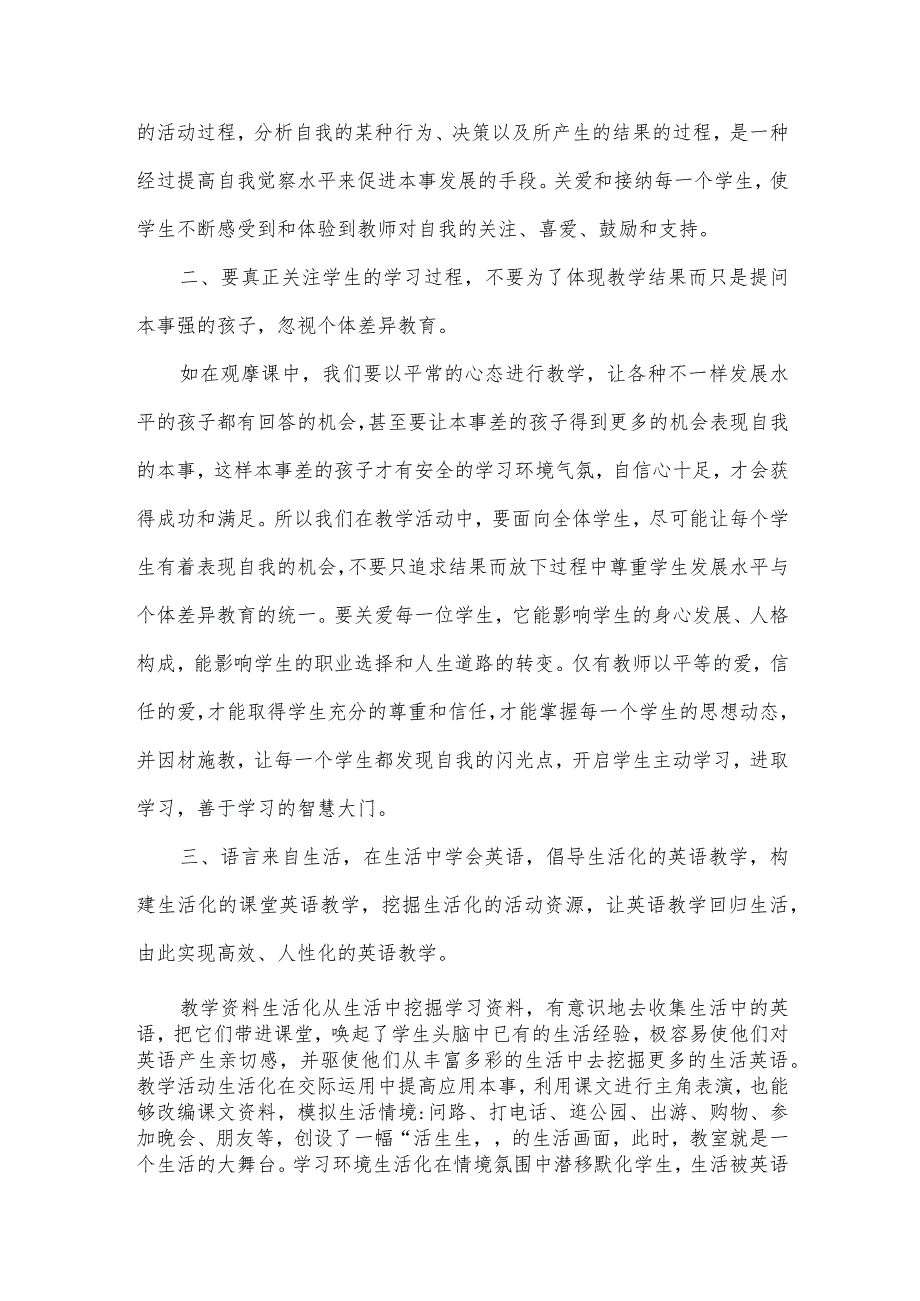 的活动过程，分析自我的某种行为、决策以及所产生的结果的过程，是一种
经过提高自我觉察水平来促进本事发展的手段。关爱和接纳每一个学生，使
学生不断感受到和体验到教师对自我的关注、喜爱、鼓励和支持。
二、要真正关注学生的学习过程，不要为了体现教学结果而只是提问
本事强的孩子，忽视个体差异教育。
如在观摩课中，我们要以平常的心态进行教学，让各种不一样发展水
平的孩子都有回答的机会，甚至要让本事差的孩子得到更多的机会表现自我
的本事，这样本事差的孩子才有安全的学习环境气氛，自信心十足，才会获
得成功和满足。所以我们在教学活动中，要面向全体学生，尽可能让每个学
生有着表现自我的机会，不要只追求结果而放下过程中尊重学生发展水平与
个体差异教育的统一。要关爱每一位学生，它能影响学生的身心发展、人格
构成，能影响学生的职业选择和人生道路的转变。仅有教师以平等的爱，信
任的爱，才能取得学生充分的尊重和信任，才能掌握每一个学生的思想动态，
并因材施教，让每一个学生都发现自我的闪光点，开启学生主动学习，进取
学习，善于学习的智慧大门。
三、语言来自生活，在生活中学会英语，倡导生活化的英语教学，构
建生活化的课堂英语教学，挖掘生活化的活动资源，让英语教学回归生活，
由此实现高效、人性化的英语教学。
教学资料生活化从生活中挖掘学习资料，有意识地去收集生活中的英
语，把它们带进课堂，唤起了学生头脑中已有的生活经验，极容易使他们对
英语产生亲切感，并驱使他们从丰富多彩的生活中去挖掘更多的生活英语。
教学活动生活化在交际运用中提高应用本事，利用课文进行主角表演，也能
够改编课文资料，模拟生活情境:问路、打电话、逛公园、出游、购物、参
加晚会、朋友等，创设了一幅“活生生，，的生活画面，此时，教室就是一
个生活的大舞台。学习环境生活化在情境氛围中潜移默化学生，生活被英语